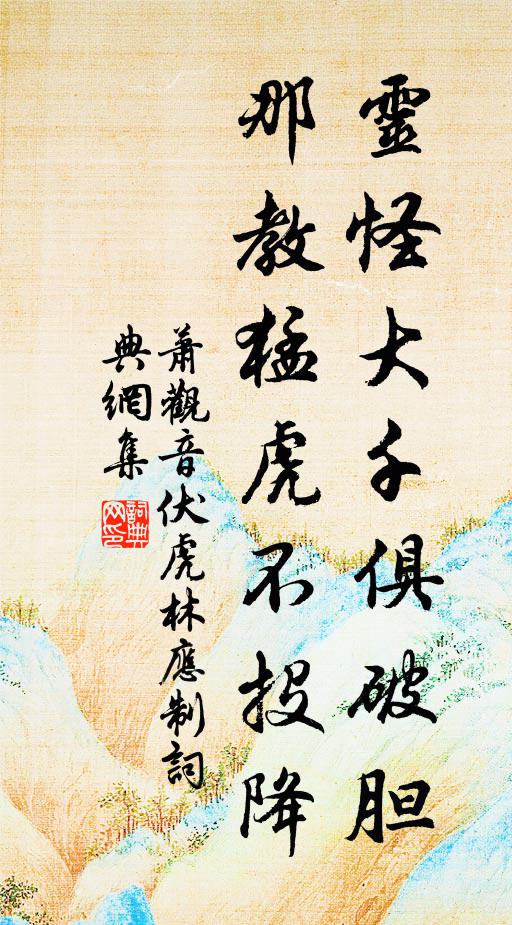 靈怪大千俱破胆
那教猛虎不投降
蕭觀音伏虎林應制詞
典網集
詞典
网印